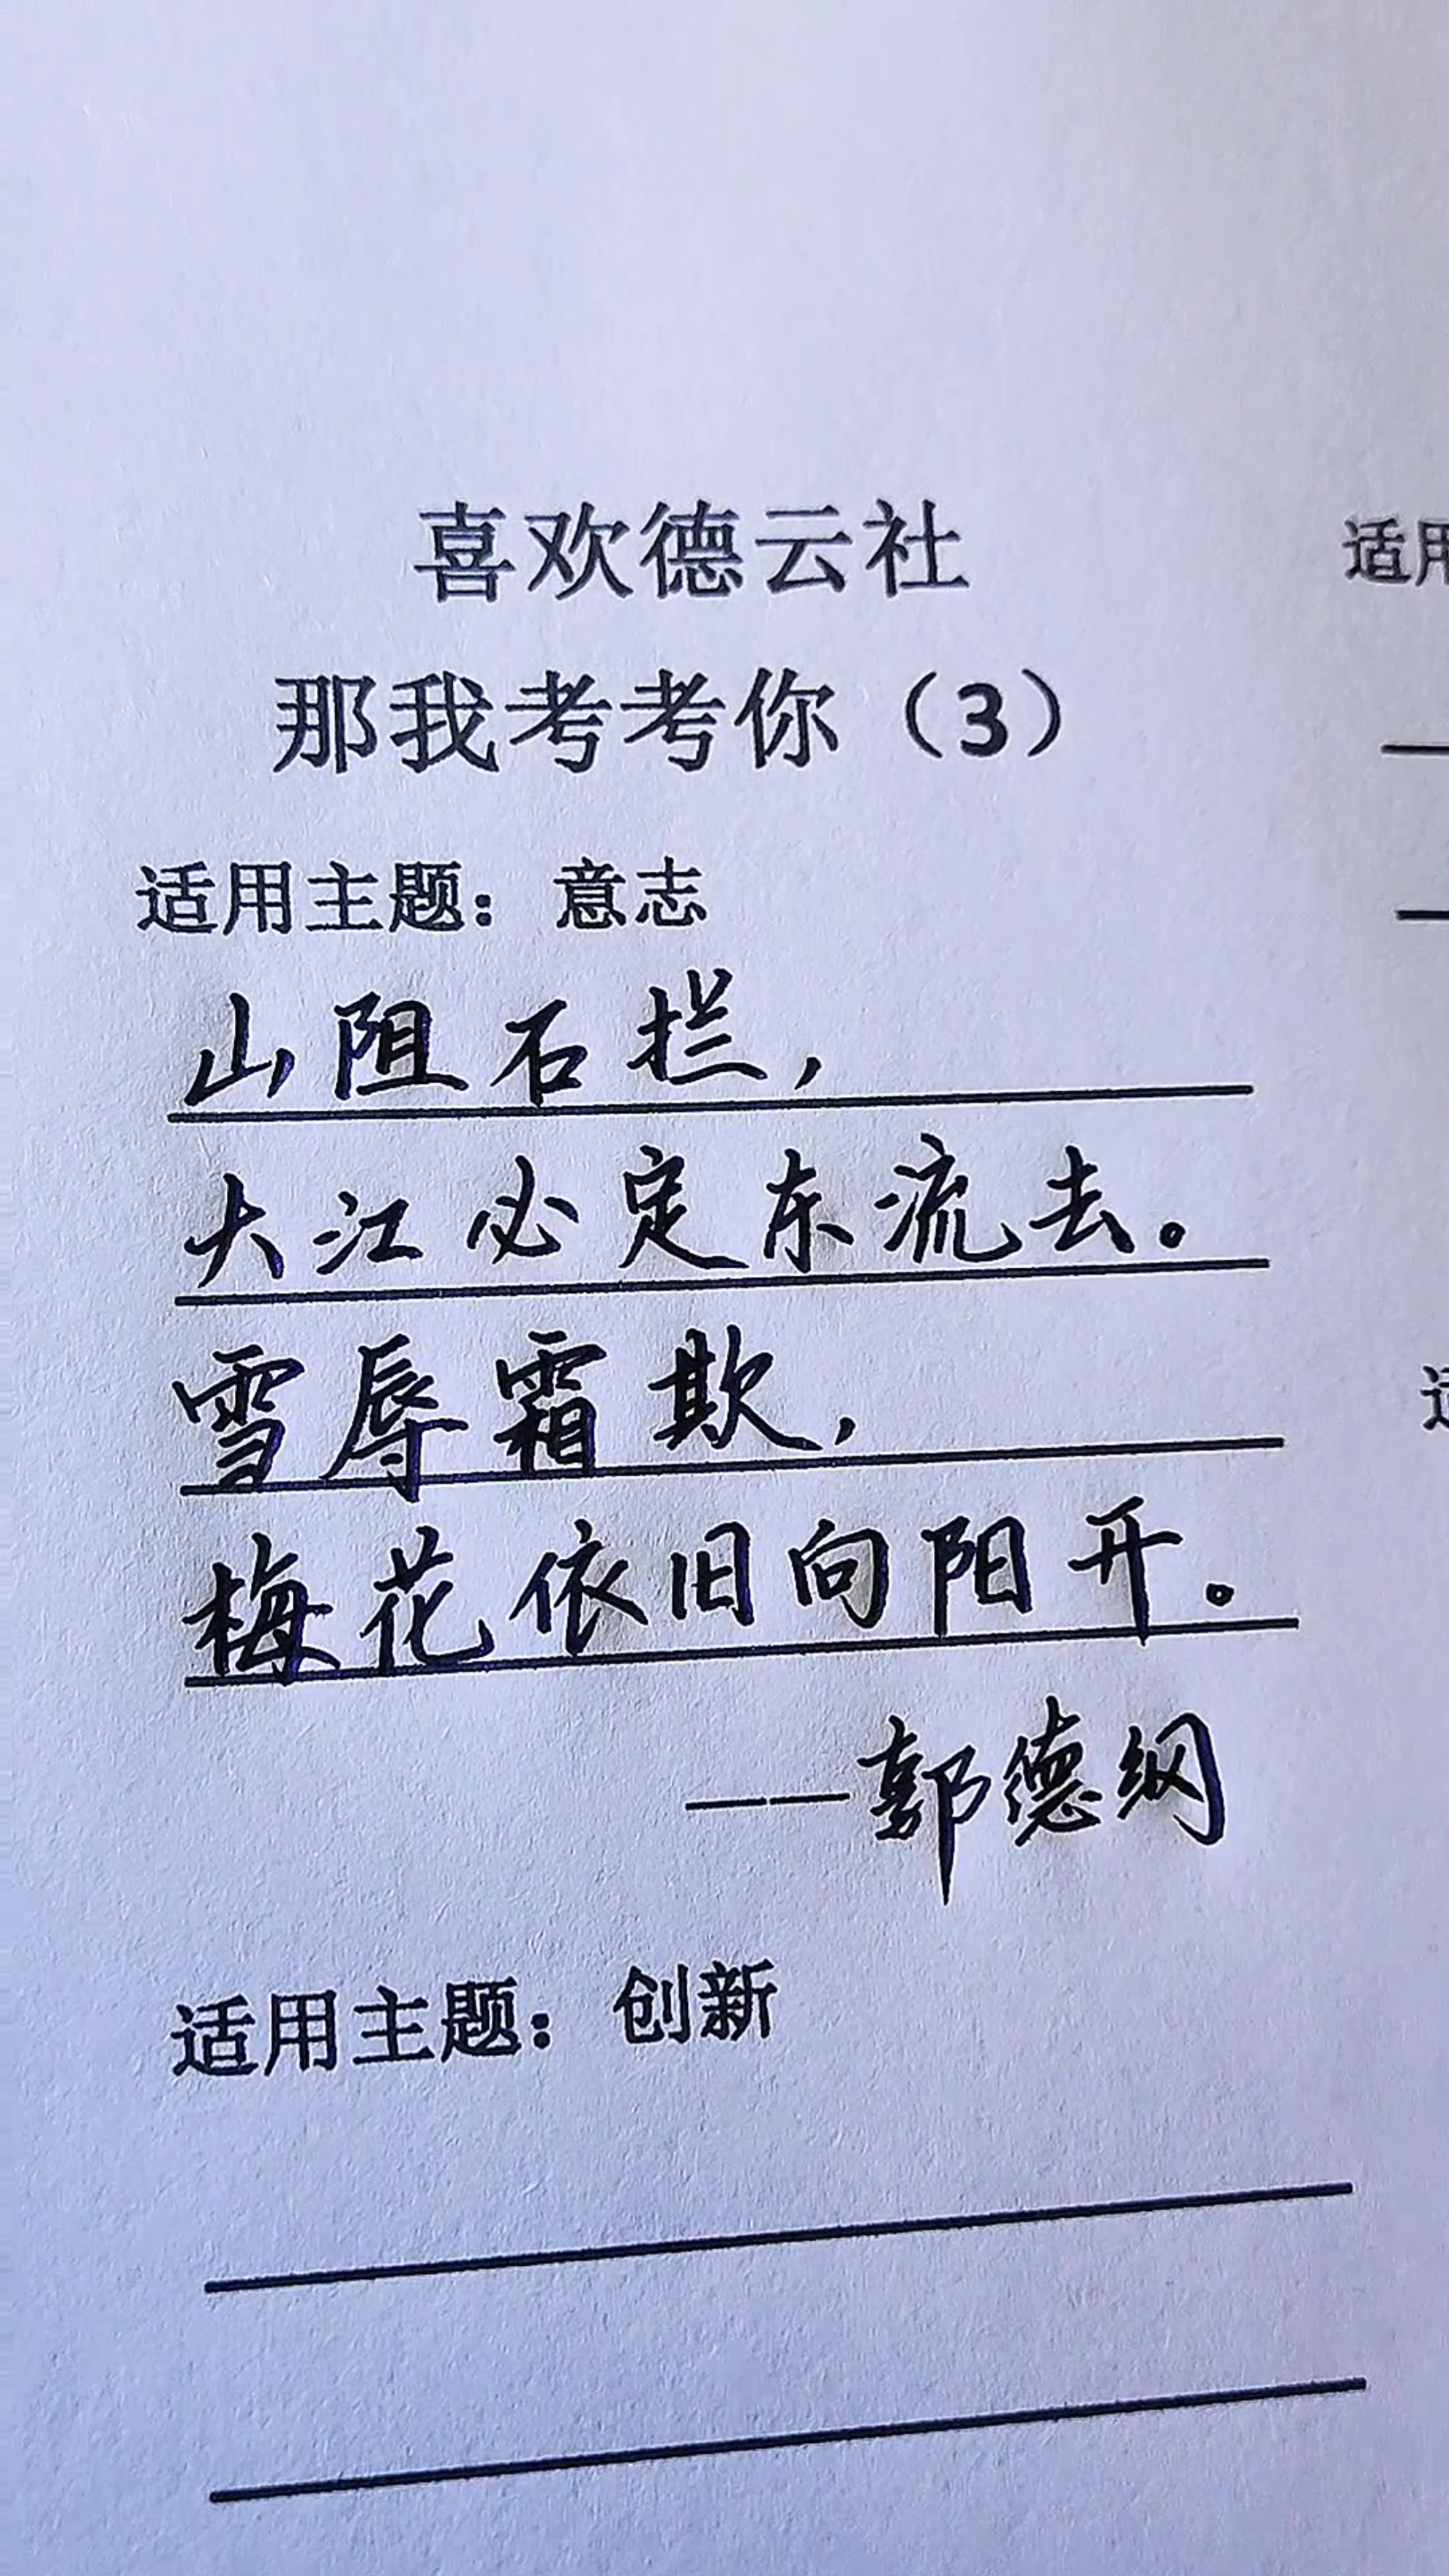 喜欢德云社
那我考考你（3）
适用主题：意志
山阻石拦，
大江必定东流去。
雪辱霜欺，
梅花依旧向阳开。
——郭德纲
适用主题：创新
适用